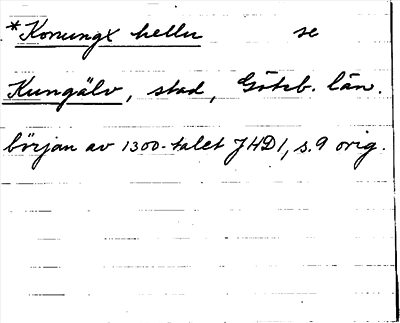 *Konungx hellu se
Kungälv, stad, Göteb. län.
början av 1300-talet JHD1, s.9 orig.